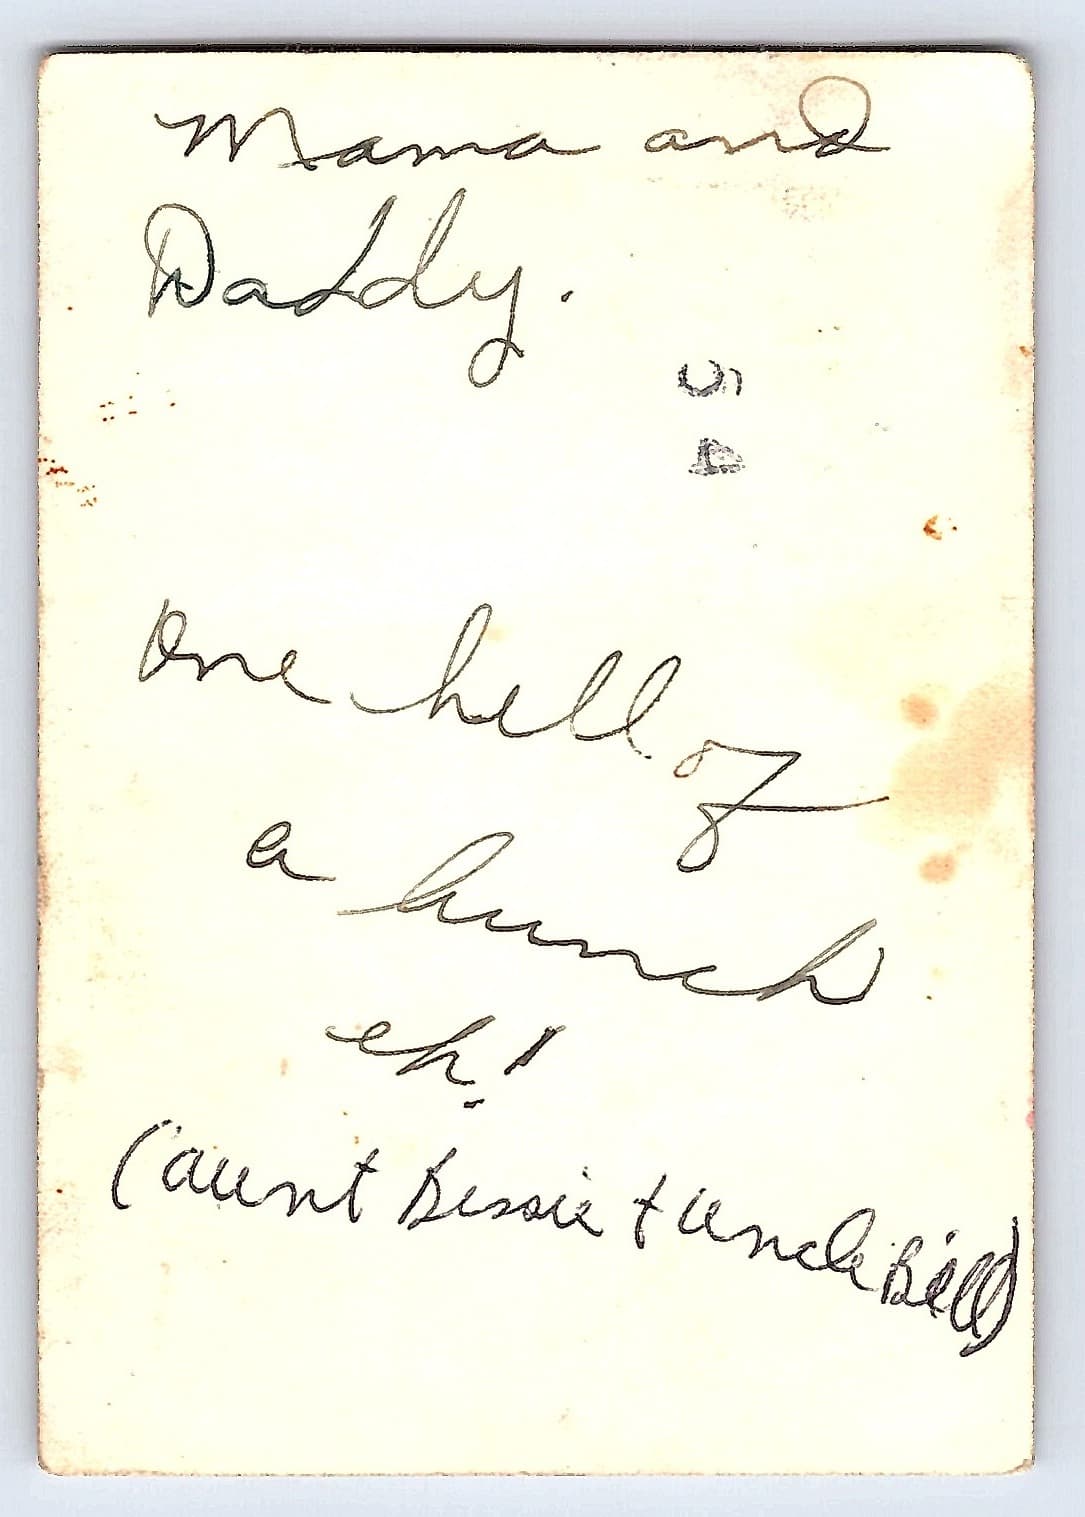 Mama and
Daddy.
One hell of
a bunch
eh!
(aunt Bessie + Uncle Bill)